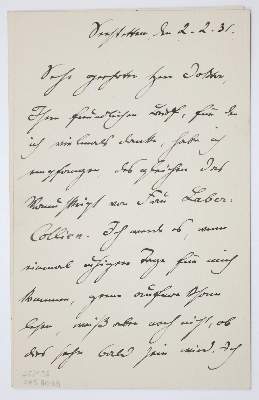 Seestetten, den 2.2.31.
Sehr geehrter Herr Doktor,
Ihren freundlichen Brief, für den
ich vielmals danke, habe ich
empfangen desgleichen das
Manuskript von Frau Laber-
Collien. Ich werde es, wenn
einmal ruhigere Tage für mich
kommen, gerne aufmerksam
lesen, weiß aber noch nicht, ob
dies sehr bald sein wird. Ich